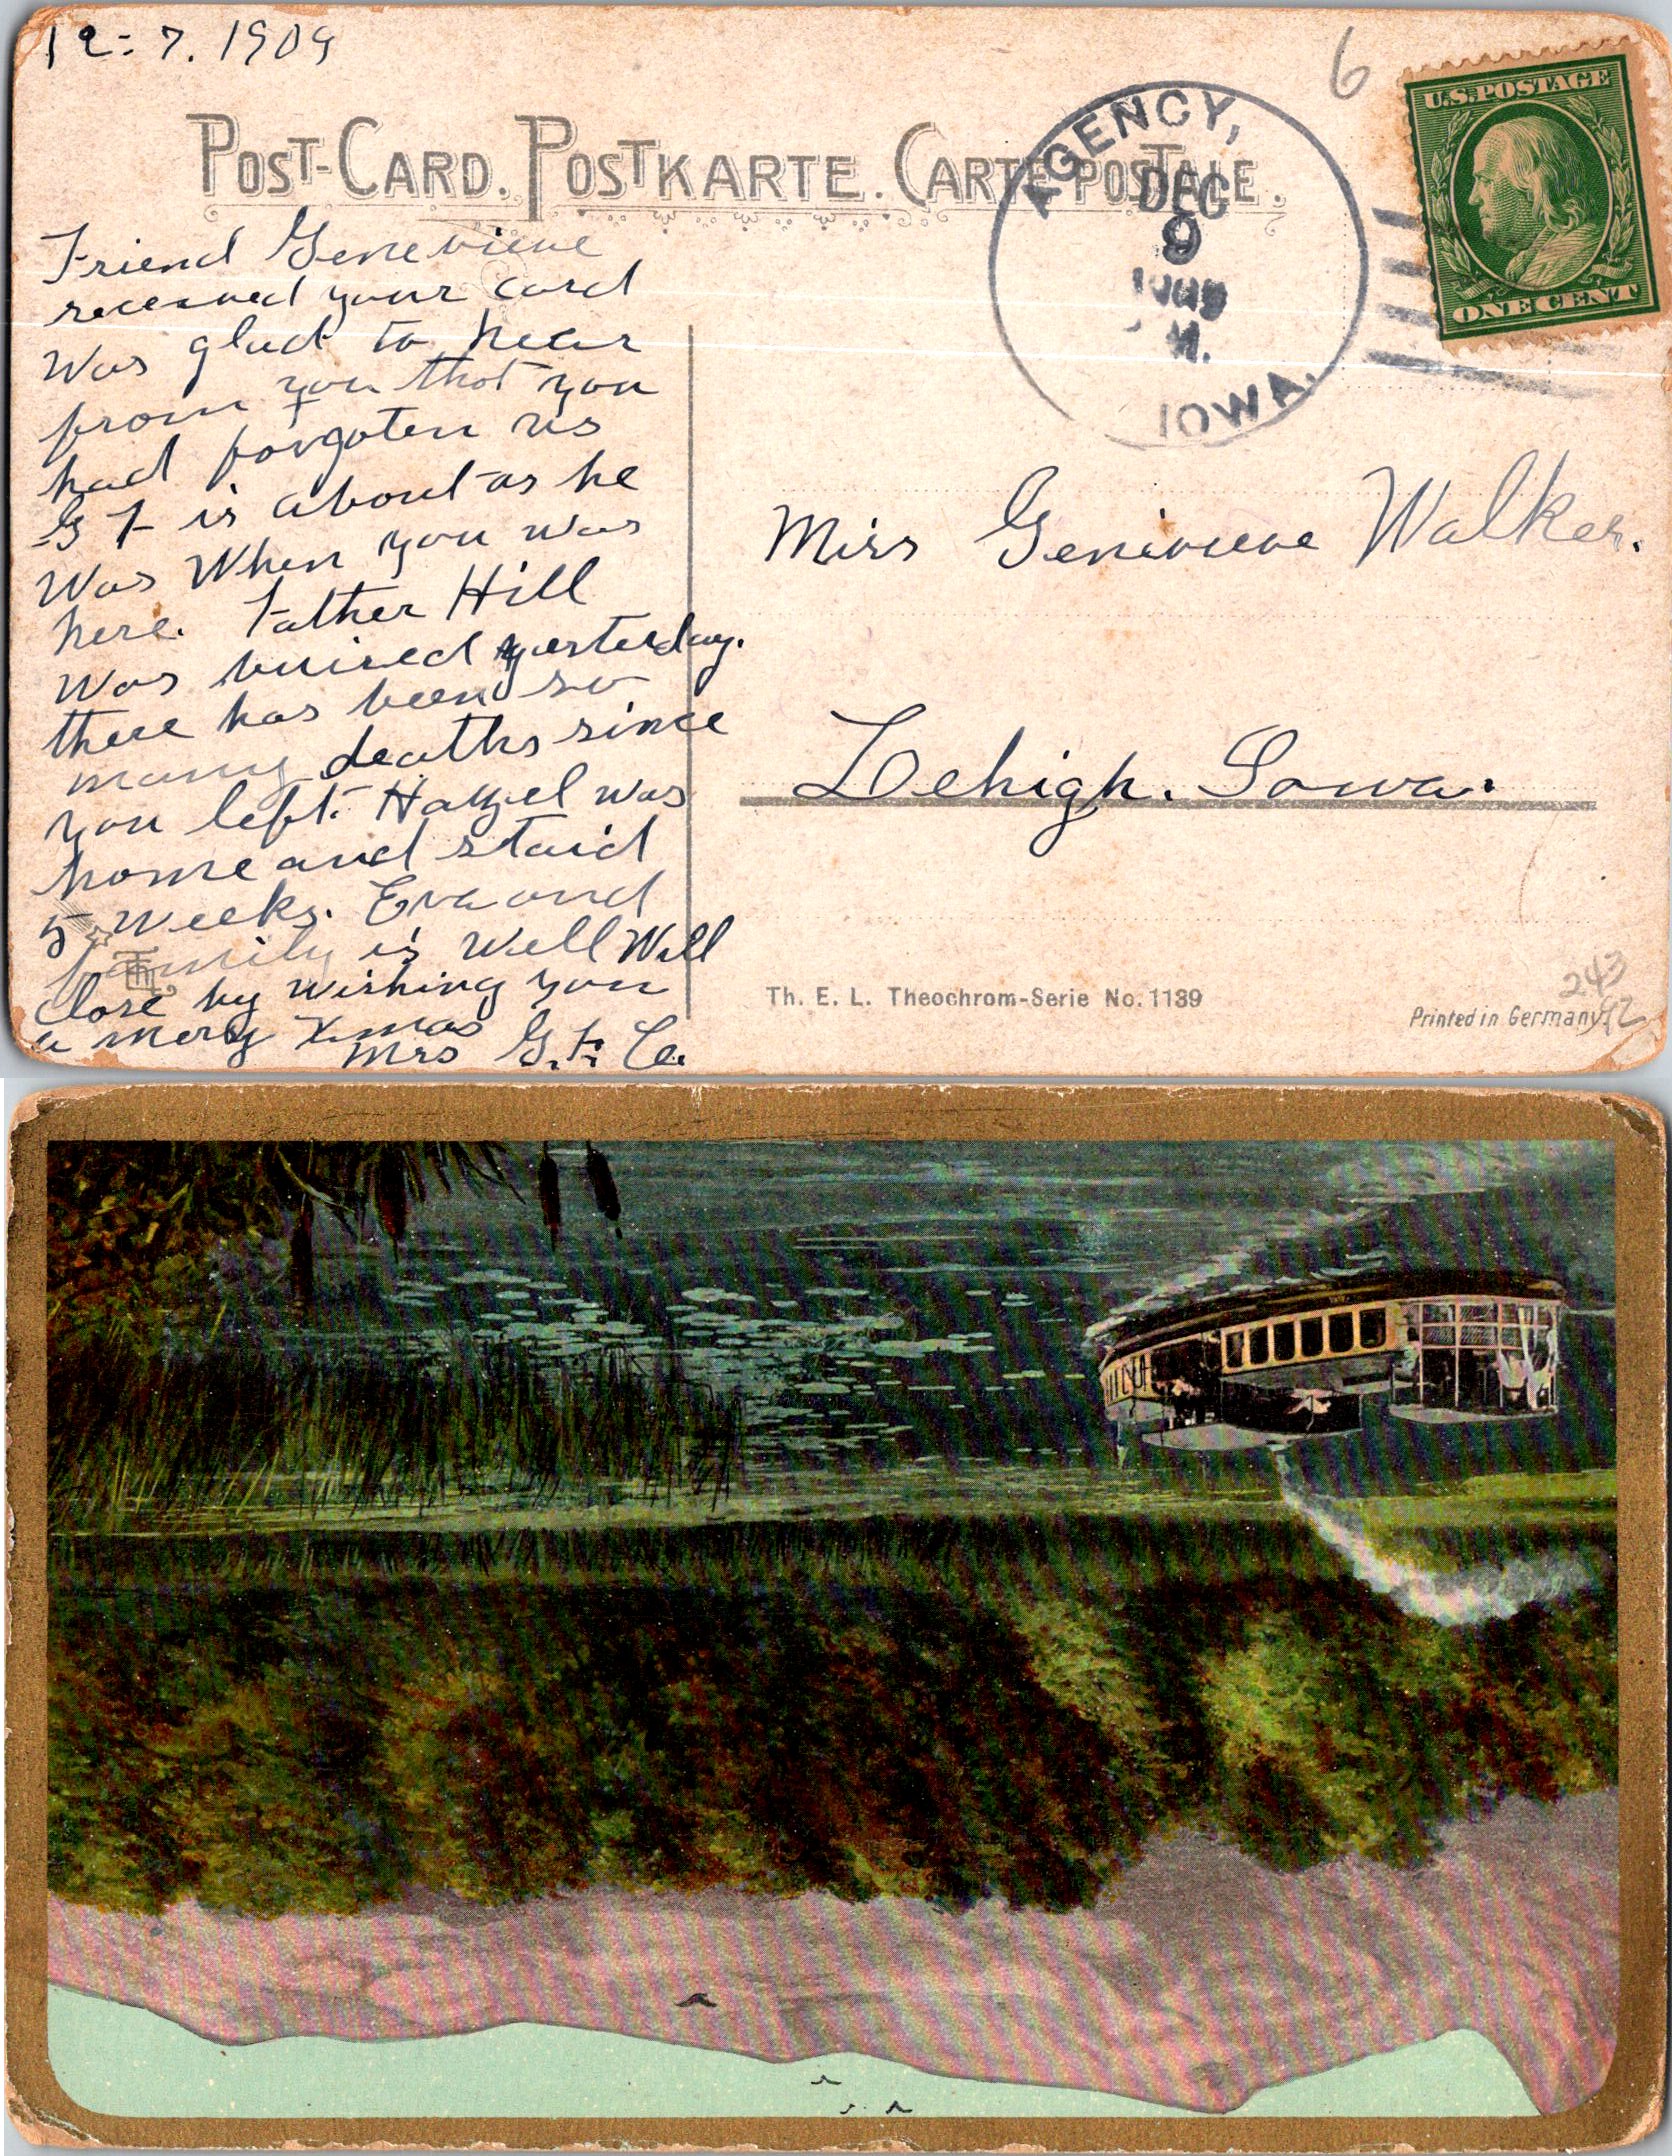 12-7.1909
6
U.S. POSTAGE
ONE CENT
AGENCY,
DEC
9
1909
M.
IOWA.
POST-CARD. POSTKARTE. CARTE POSTALE.
Friend Genevieve
received your card
Was glad to hear
from you that you
had forgoten us
G F is about as he
Was When you was
here. Father Hill
Was buired yesterday.
there has been so
many deaths since
you left. Hazel was
home and staid
5 Weeks. Eva and
family is Well Will
close by wishing you
a mery Xmas
Mrs G. F. Co.
Miss Genivieve Walker.
Lehigh. Iowa.
Th. E. L. Theochrom-Serie No. 1139
243
Printed in Germany